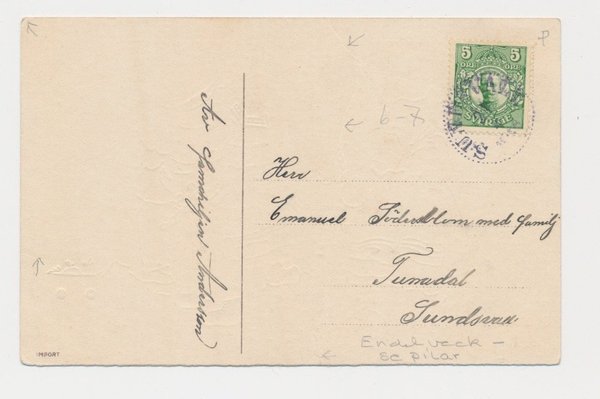 5 5
ÖRE ÖRE
SVERIGE
6-7
Av familjen Andersson
Herr
Emanuel Söderblom med familj
Tunadal
Sundsvall
Endel veck -
se pilar
IMPORT